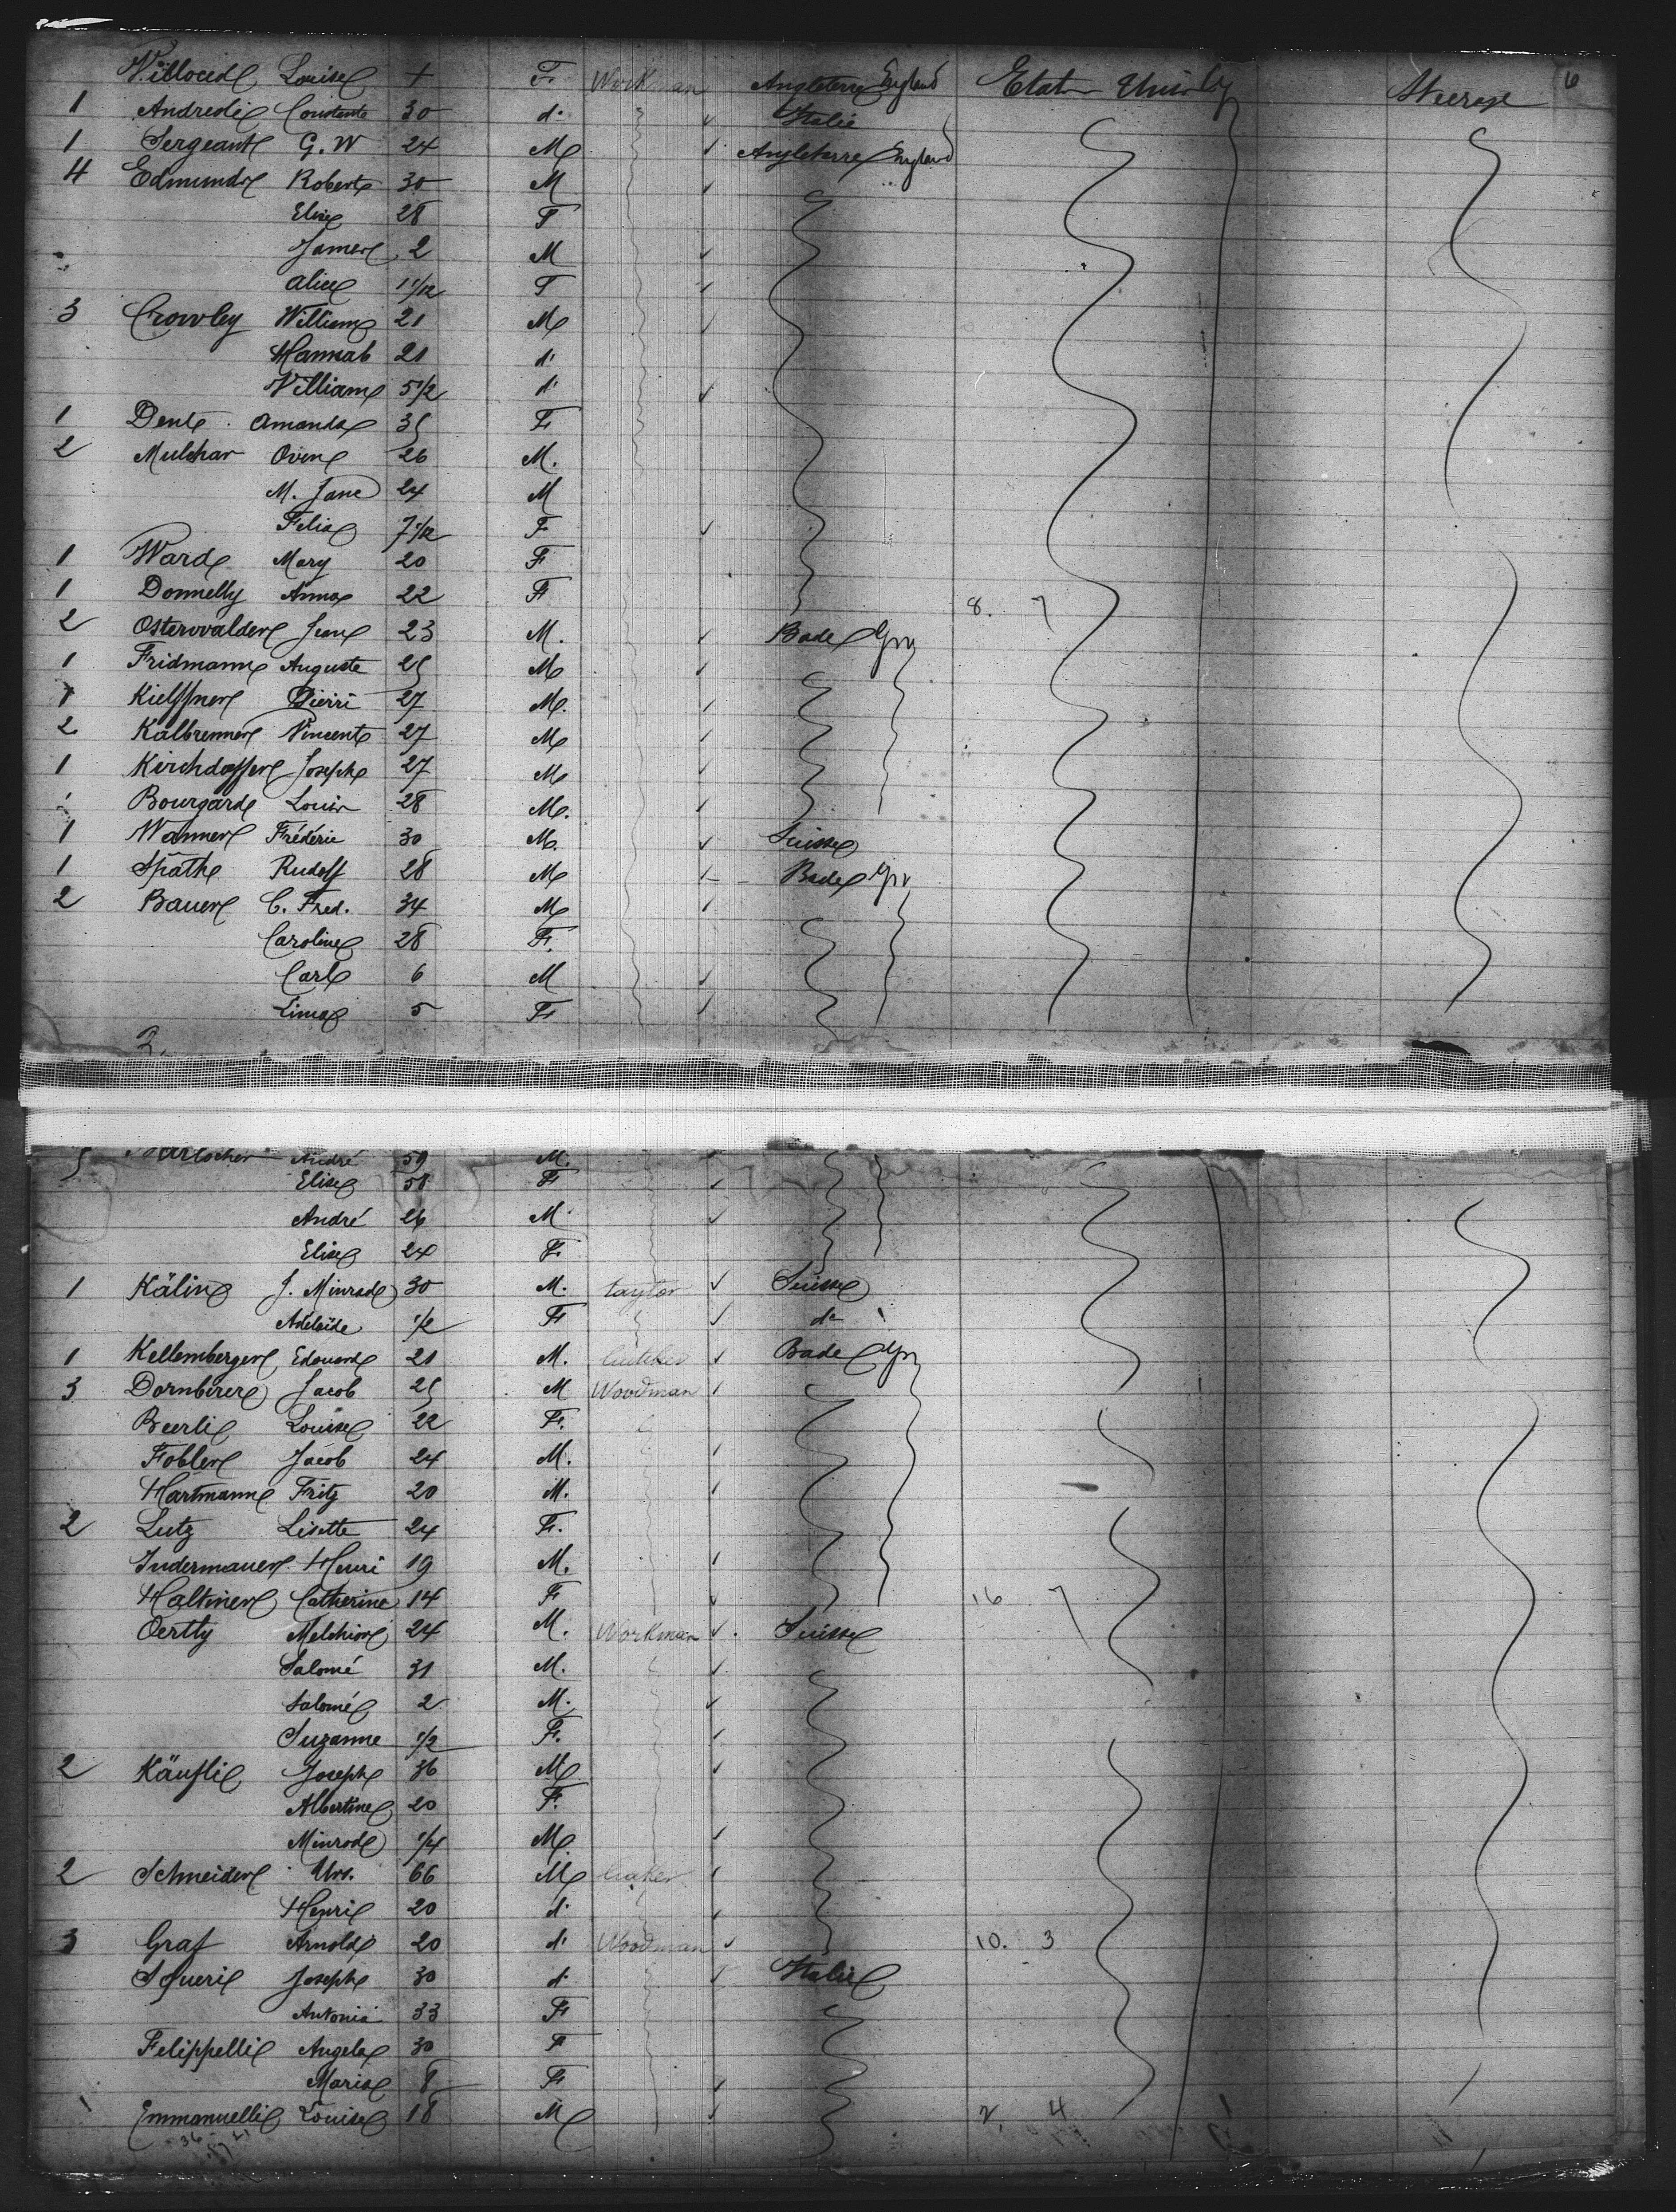 6
Villoced Louise + F Workman Angleterre England Etats Unis Steerage
1 Andredi Constente 30 d° Italie
1 Sergeant G. W 24 M Angleterre England
4 Edmunds Robert 30 M
Elise 28 F
James 2 M
Alice 11/12 F
3 Crowley William 21 M
Hannah 21 d°
William 5 1/2 d°
1 Dent Amanda 35 F
2 Mulchar Owen 26 M.
M. Jane 24 M
Felia 7/12 F
1 Ward Mary 20 F
1 Donnelly Anna 22 F 8. 7
2 Osterwalder Jean 23 M. Bade Gry
1 Fridmann Auguste 25 M
1 Kielffner Pierri 27 M.
2 Kalbrenner Vincent 27 M
1 Kirchdoffer Joseph 27 M
Bourgard Louis 28 M.
1 Wanner Fréderic 30 M. Suisse
1 Späth Rudolf 28 M Bade Gry
2 Bauer C. Fred. 34 M
Caroline 28 F.
Carl 6 M
Lima 5 F
2.
5 André 59 M.
Elise 58 F
André 26 M
Elise 24 F.
1 Kälin J. Minrad 30 M. taylor Suisse
Adélaïde 1/2 F d°
1 Kellemberger Edouard 21 M. Bade Gry
3 Dornbirer Jacob 25 M Woodman
Beerli Louise 22 F.
Fobler Jacob 24 M.
Hartmann Fritz 20 M.
2 Lutz Lisette 24 F.
Indermauer Henri 19 M.
Haltiner Catherine 14 F 16 7
Oertly Melchior 24 M. Workman Suisse
Salomé 31 M.
Salomé 2 M.
Suzanne 1/2 F.
2 Käufli Joseph 36 M
Albertine 20 F.
Minrod 1/4 M.
2 Schneider Urs. 66 M baker
Henri 20 d°
3 Graf Arnold 20 d° Woodman 10. 3
Squeri Joseph 30 d° Italie
Antonia 33 F
Filippelli Angela 30 F
Maria 8 F
Emmanuelli Louise 18 M 2, 4